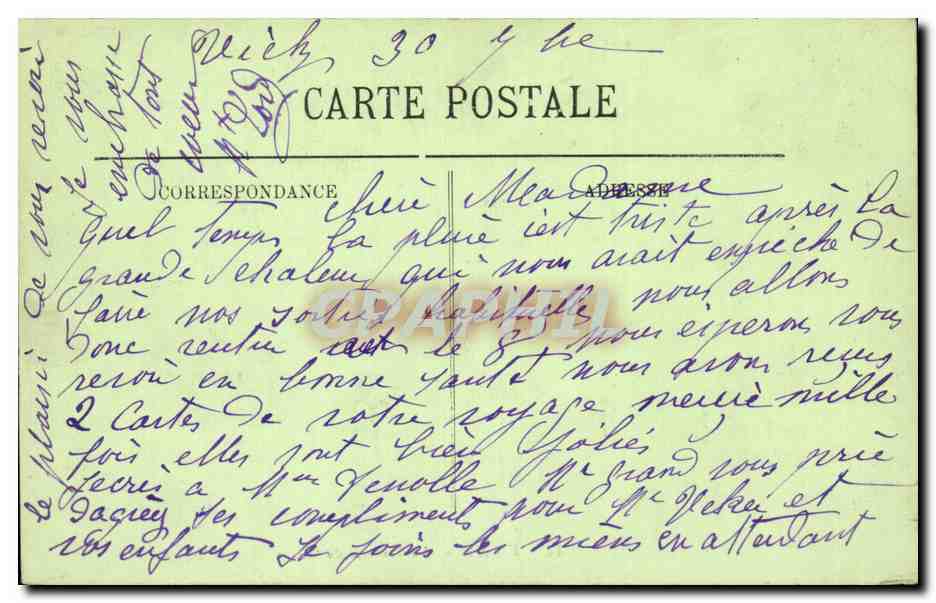 Vichy 30 7bre
CARTE POSTALE
CORRESPONDANCE
ADRESSE
chère Madame
Quel temps la pluie c'est triste après la
grande chaleur qui nous avait empêché de
faire nos sorties habituelles nous allons
donc rentrer le 8 nous esperons vous
revoir en bonne santé nous avons reçus
2 cartes de votre voyage merci mille
fois elles sont bien jolies
Jecris a Mme Mr Grand vous prie
dagréez ses compliments pour Mr et
vos enfants Je joins les miens en attendant
le plaisir de vous revoir
Je vous
embrasse
de tout
coeur
CPAPHIL